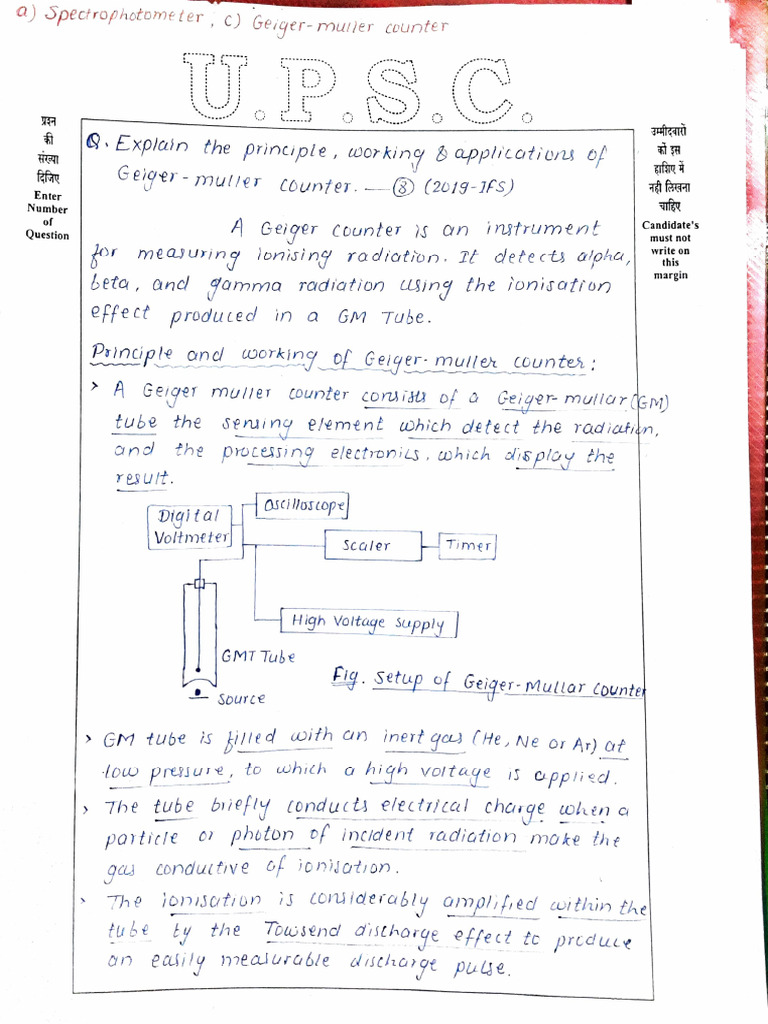 a) Spectrophotometer, c) Geiger-muller counter
U.P.S.C.
प्रश्न
की
संख्या
दिजिए
Enter
Number
of
Question
उम्मीदवारों
को इस
हाशिए में
नही लिखना
चाहिए
Candidate's
must not
write on
this
margin
Q. Explain the principle, working & applications of
Geiger-muller counter. — 8 (2019-IFS)
A Geiger counter is an instrument
for measuring ionising radiation. It detects alpha,
beta, and gamma radiation using the ionisation
effect produced in a GM Tube.
Principle and working of Geiger-muller counter:
> A Geiger muller counter consists of a Geiger-mullar (GM)
tube the sensing element which detect the radiation,
and the processing electronics, which display the
result.
Oscilloscope
Digital
Voltmeter
Scaler
Timer
High Voltage Supply
GMT Tube
Source
Fig. Setup of Geiger-Mullar Counter
> GM tube is filled with an inert gas (He, Ne or Ar) at
low pressure, to which a high voltage is applied.
> The tube briefly conducts electrical charge when a
particle or photon of incident radiation make the
gas conductive of ionisation.
> The ionisation is considerably amplified within the
tube by the Towsend discharge effect to produce
an easily measurable discharge pulse.